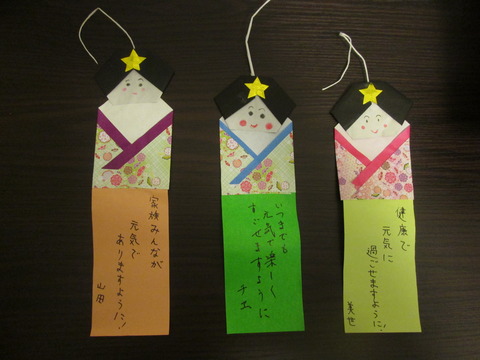 家族みんなが
元気で
ありますように!
山田
いつまでも
元気で楽しく
すごせますように
チエ
健康で
元気に
過ごせますように!
美世